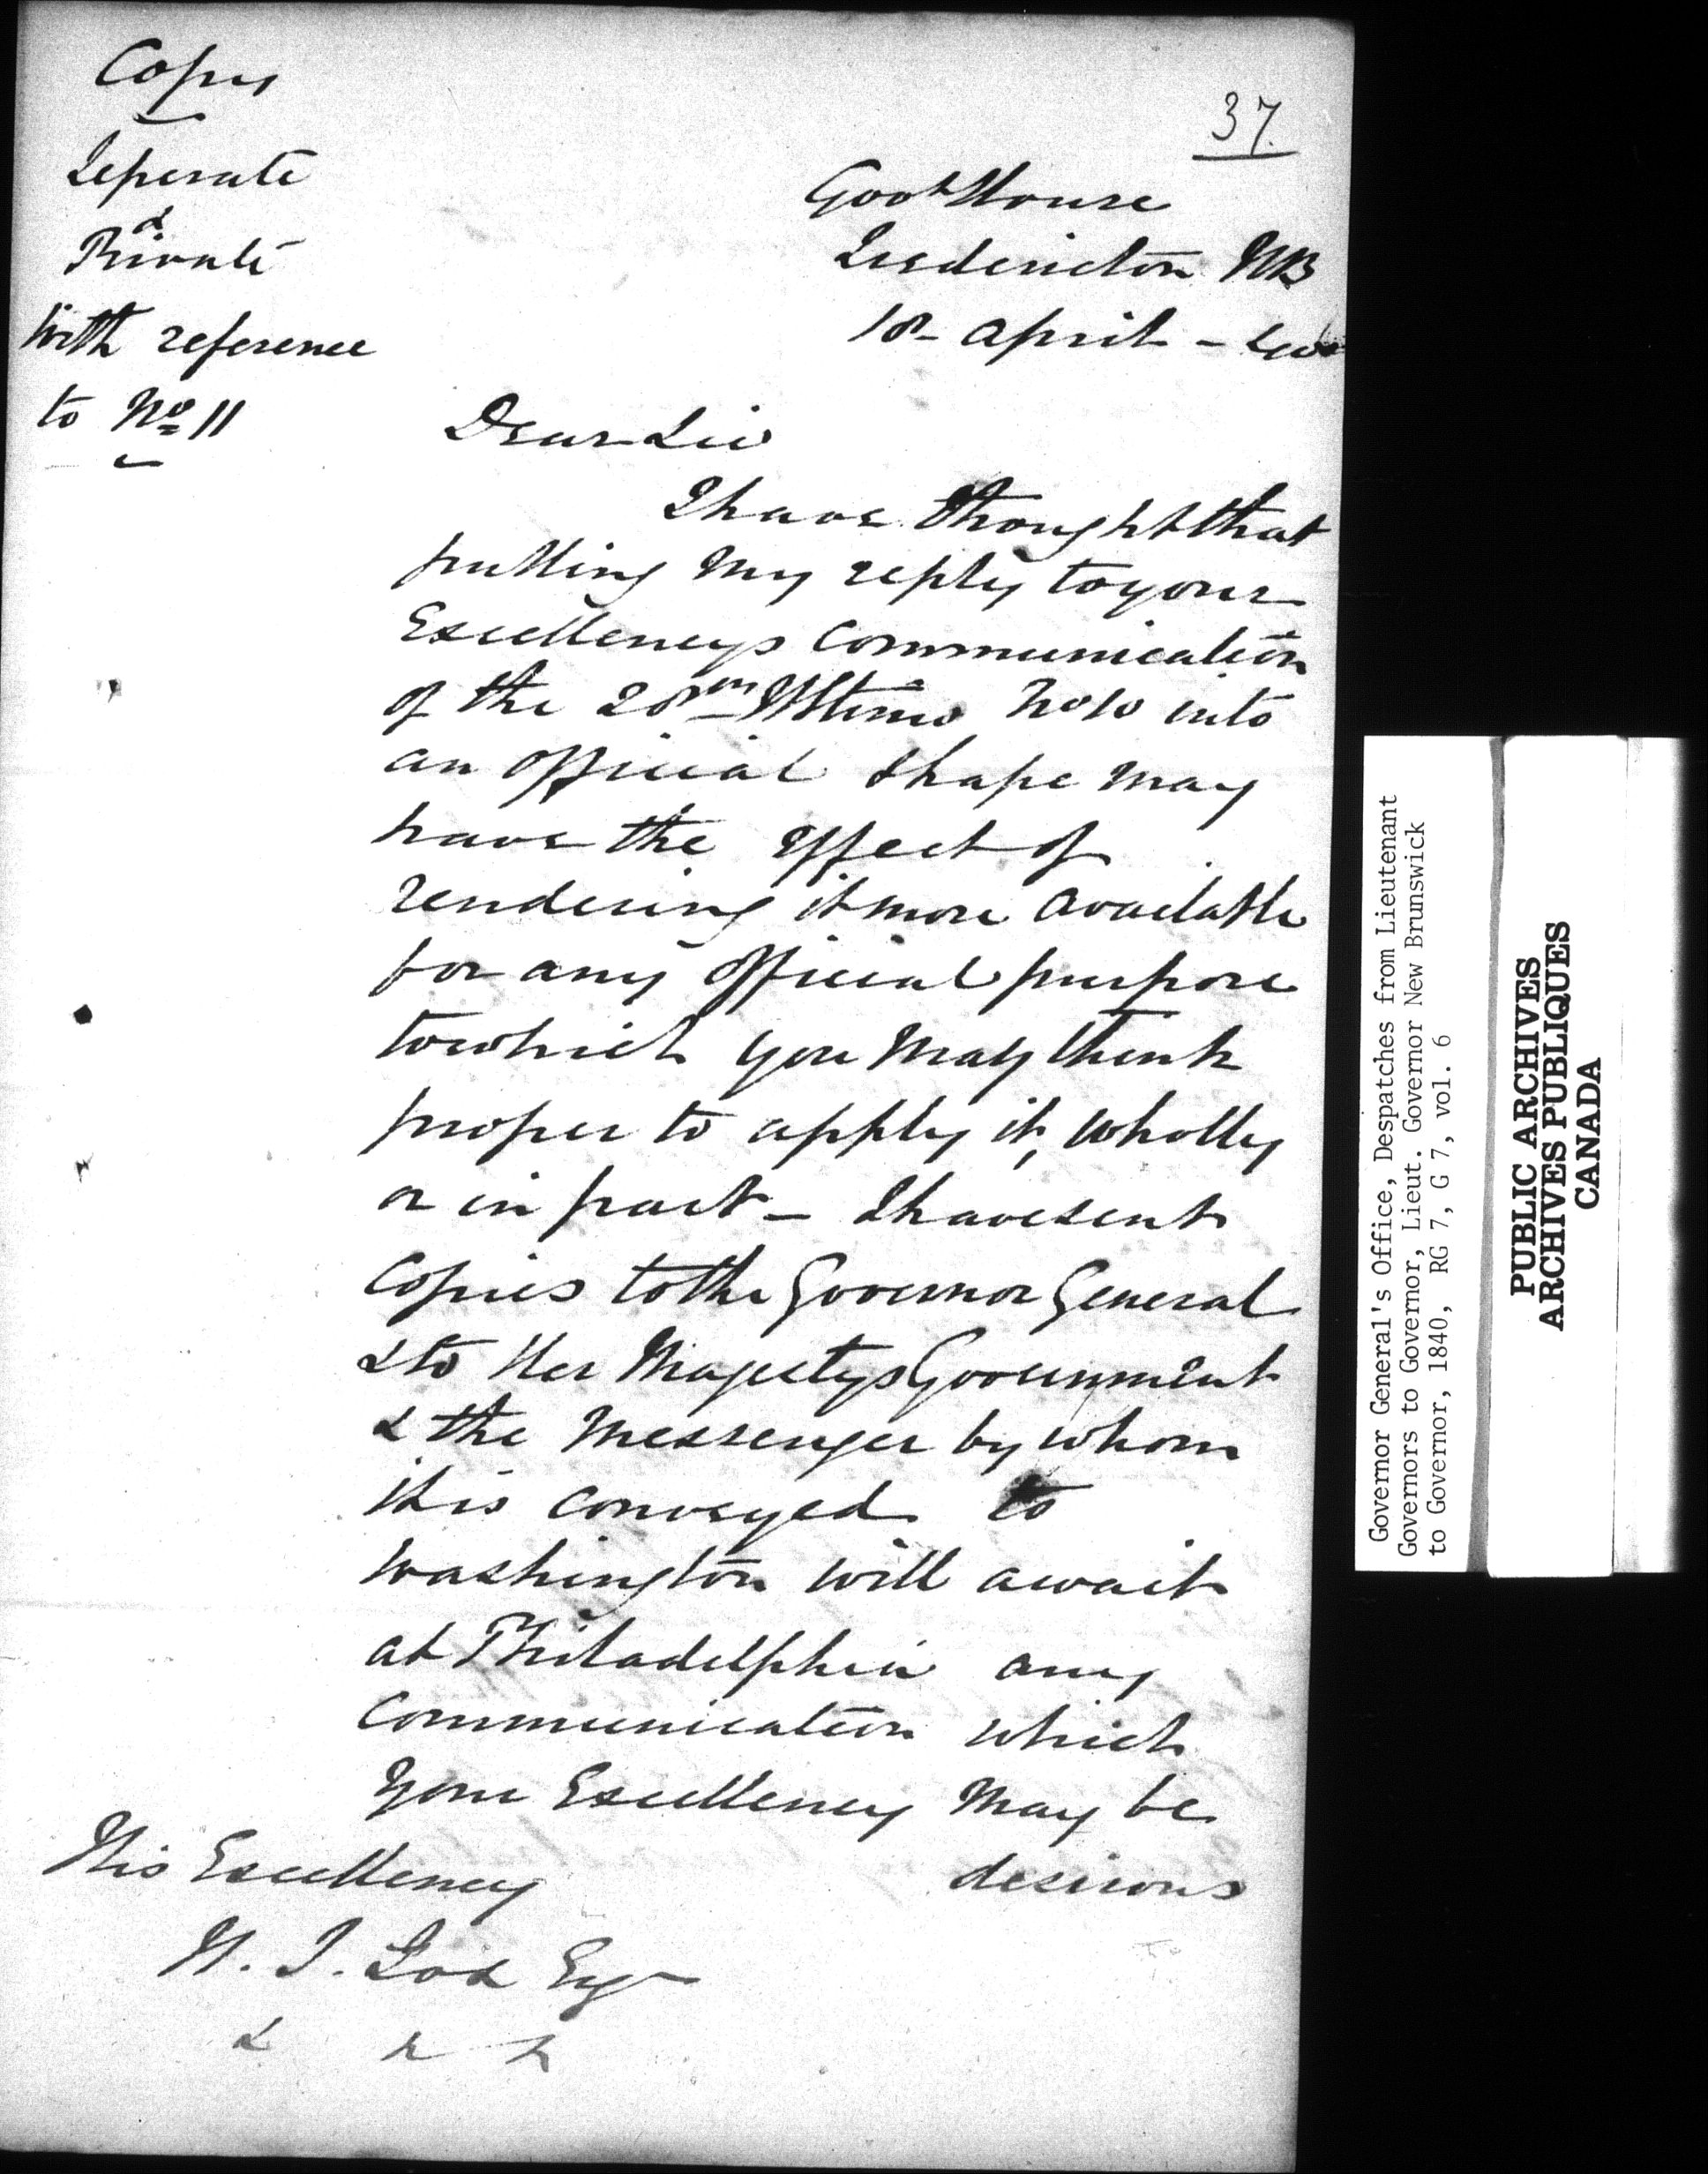 Copy
37.
Seperate
&
Private
With reference
to No 11
Govt House
Fredericton NB
18 April -
Dear Sir
I have thought that
putting my reply to your
Excellencys Communication
of the 28th Ultimo No 10 into
an official shape may
have the effect of
rendering it more available
for any official purpose
to which you may think
proper to apply it, wholly
or in part - I have sent
Copies to the Governor General
& to Her Majestys Government
& the Messenger by whom
it is conveyed to
Washington will await
at Philadelphia any
Communication which
your Excellency may be
desirous
His Excellency
H. S. Fox Esqr
& & &
Governor General's Office, Despatches from Lieutenant
Governors to Governor, Lieut. Governor New Brunswick
to Governor, 1840, RG 7, G 7, vol. 6
PUBLIC ARCHIVES
ARCHIVES PUBLIQUES
CANADA